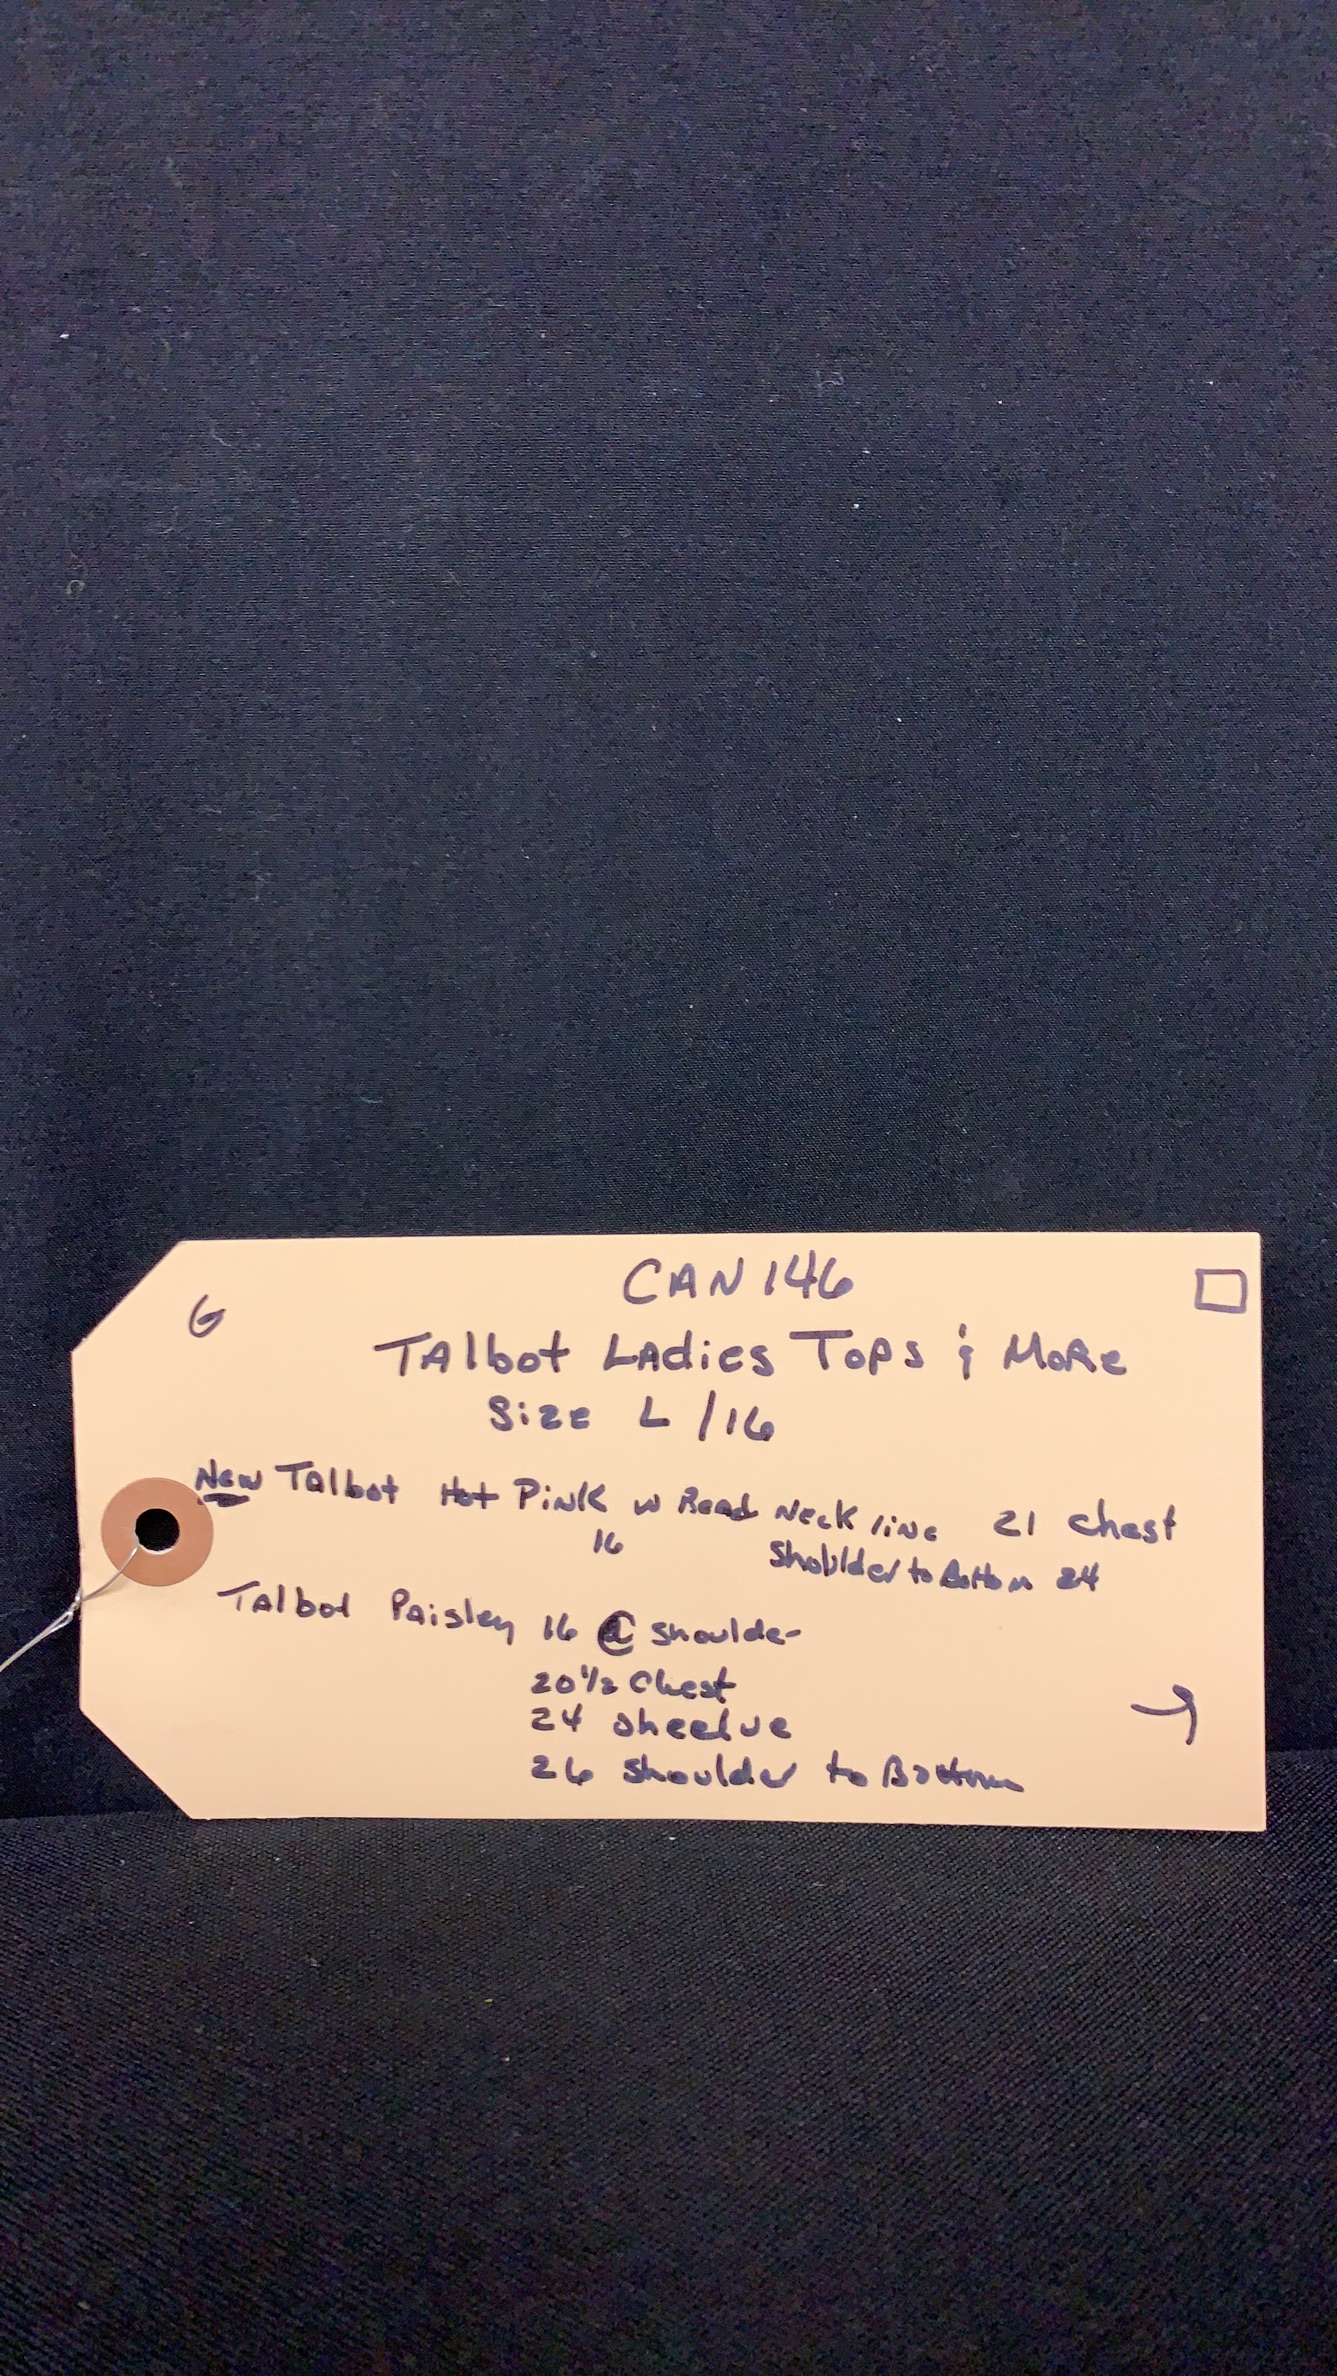 G
CAN 146
TAlbot LAdies Tops & MoRe
Size L / 16
New Talbot Hot Pink w Bead Neck line 21 chest
16 Shoulder to Bottom 24
Talbot Paisley 16 @ shoulder
20 1/2 Chest
24 sheelve
26 shoulder to Bottom